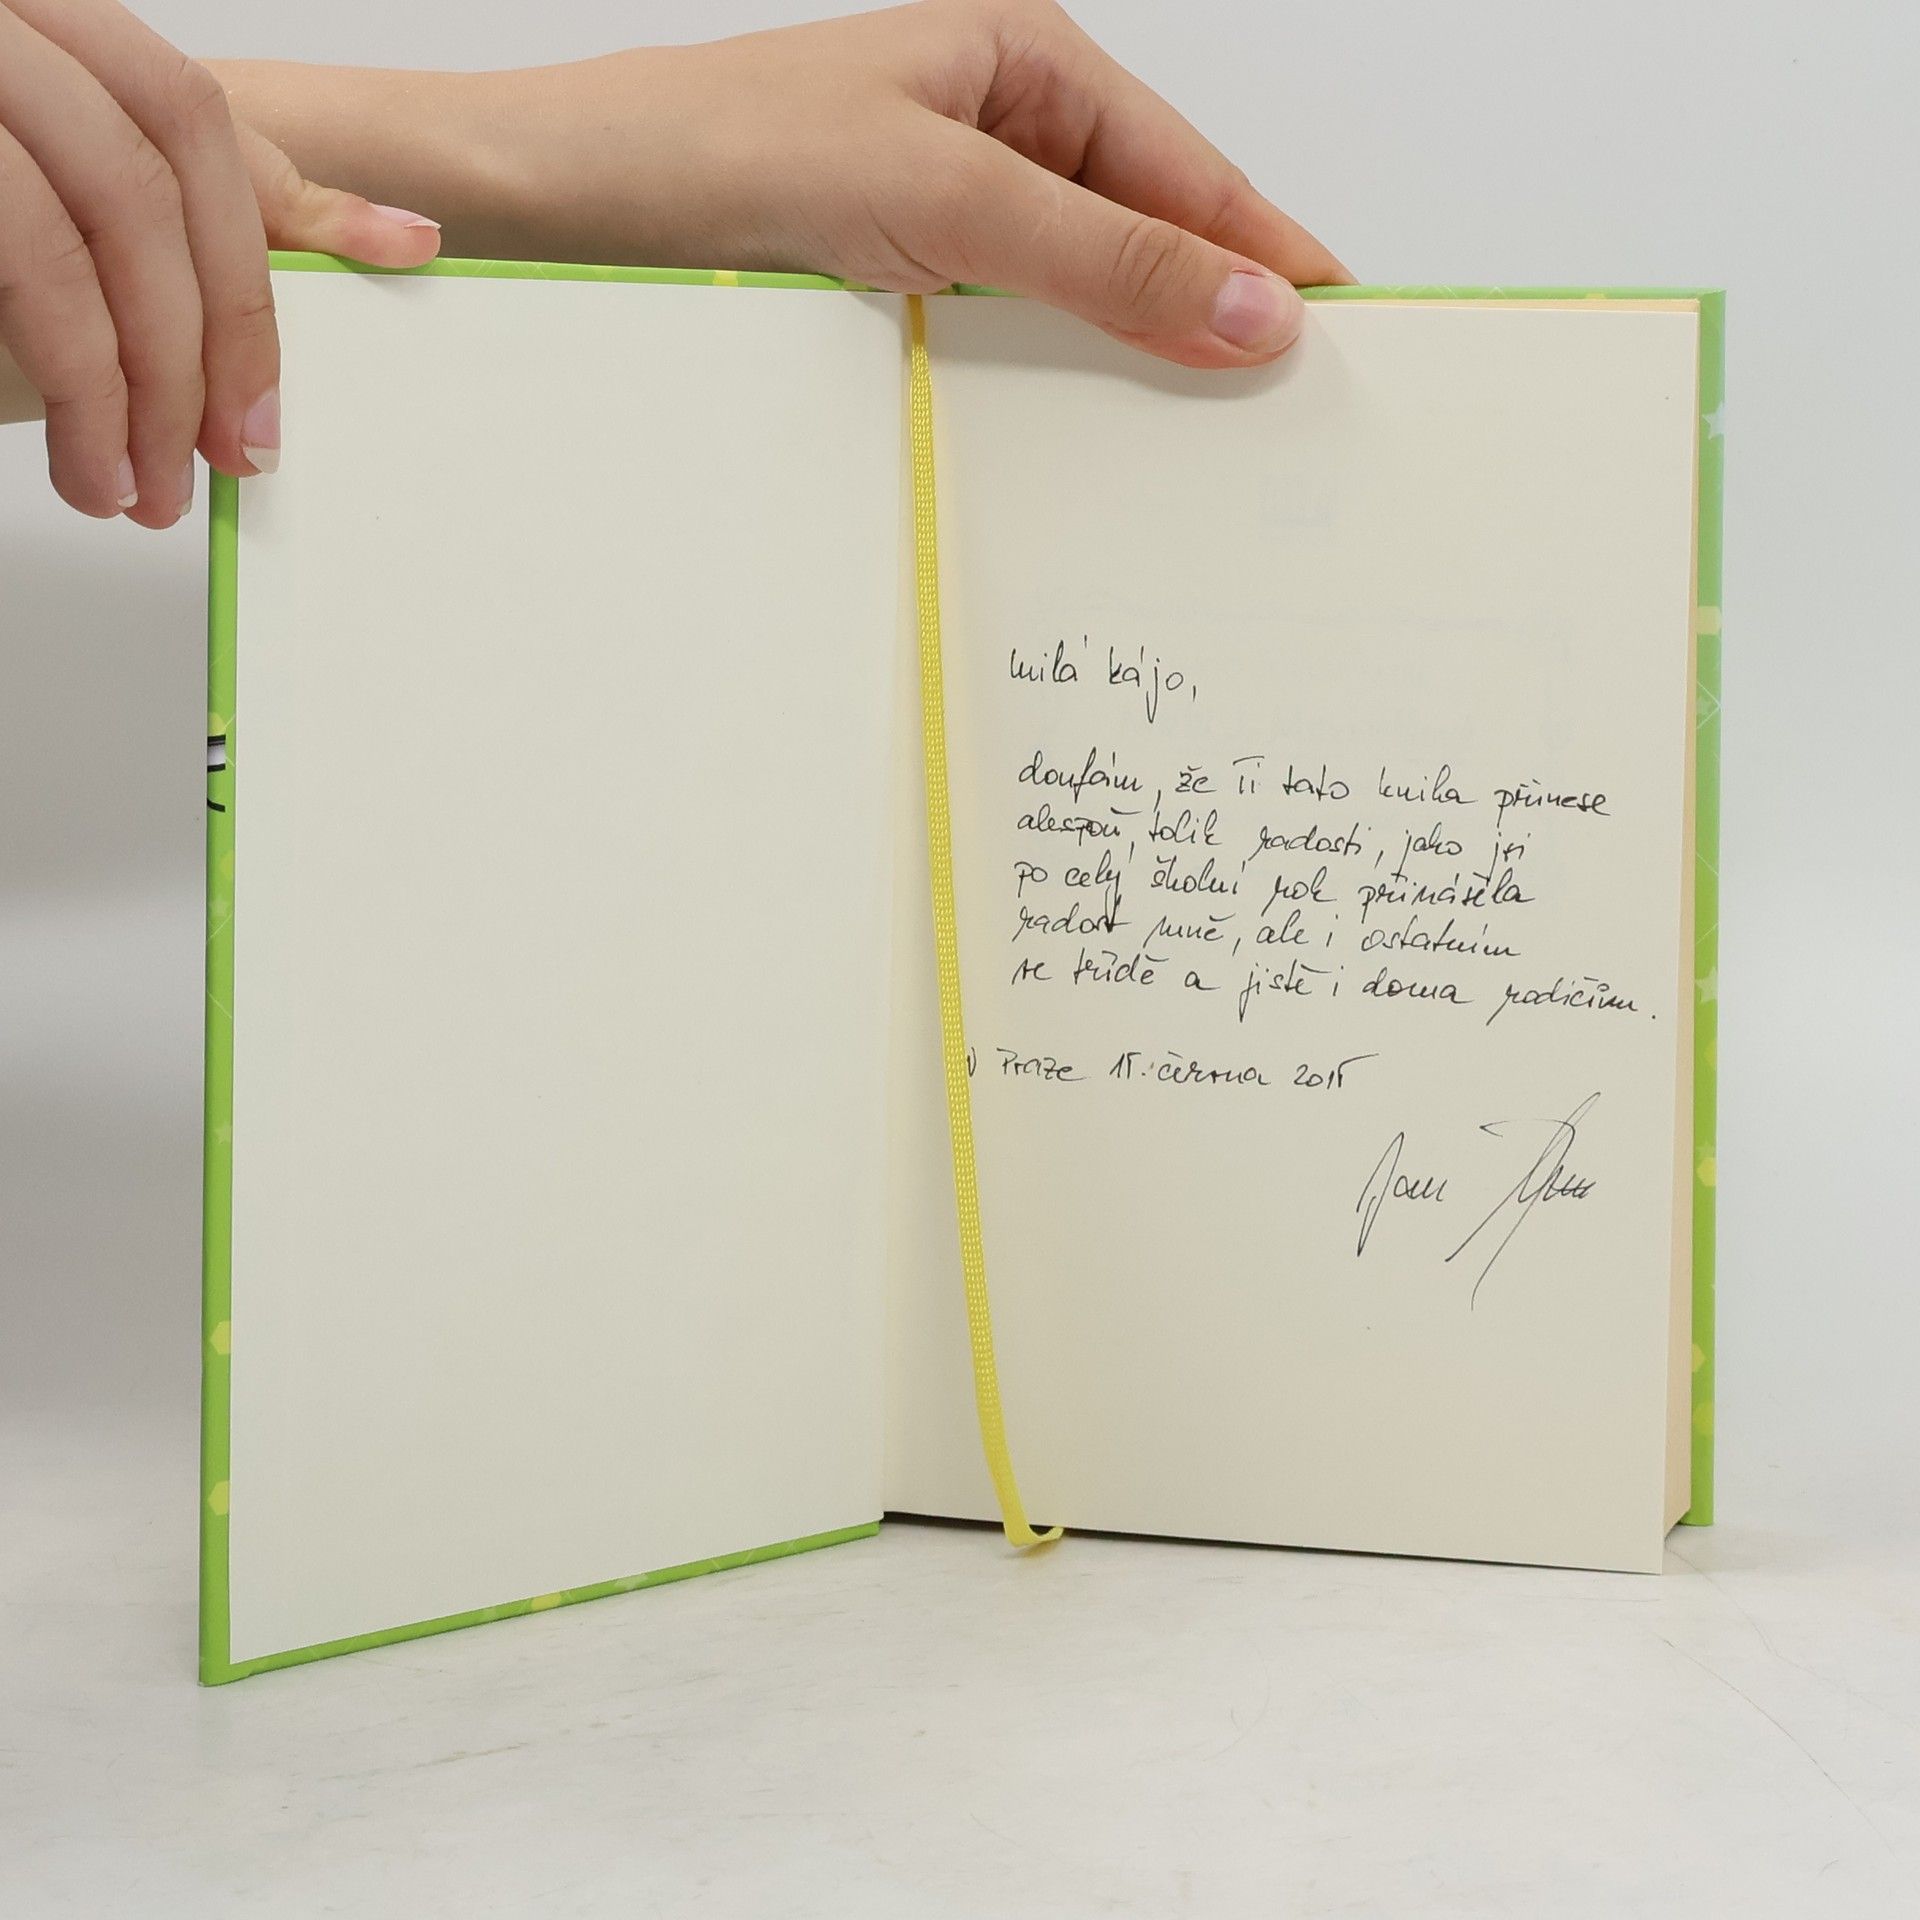 milá kájo,
doufám, že Ti tato kniha přinese
alespoň tolik radosti, jako jsi
po celý školní rok přinášela
radost mně, ale i ostatním
ve třídě a jistě i doma rodičům.
V Praze 15. června 2015
Jan